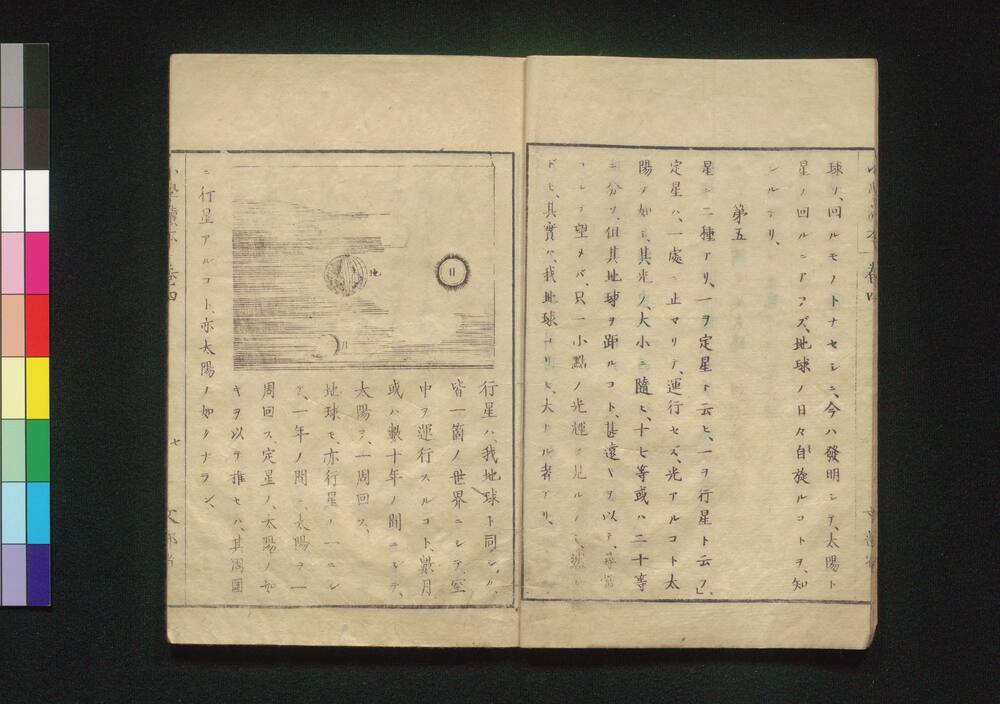 球ノ、回ルモノトナセシニ、今ハ發明シテ、太陽ト
星ノ回ルニアラズ、地球ノ日々自旋ルコトヲ、知
レルナリ、
第五
星ニ二種アリ、一ヲ定星ト云ヒ、一ヲ行星ト云フ、
定星ハ、一處ニ止マリテ、運行セズ、光アルコト太
陽ノ如シ、其光ノ、大小ニ隨ヒ、十七等或ハ二十等
ニ分ツ、但其地球ヲ距ルコト、甚遠キヲ以テ、
コレヲ望メバ、只一小點ノ光輝ヲ見ルノミ、然レ
ドモ、其實ハ、我地球ヨリモ、大ナル者アリ、
小學讀本 卷四
地
日
月
行星ハ、我地球ト同シク、
皆一箇ノ世界ニシテ、空
中ヲ運行スルコト、數月
或ハ數十年ノ間ニシテ、
太陽ヲ、一周回ス、
地球モ、亦行星ノ一ニシ
テ、一年ノ間ニ、太陽ヲ一
周回ス、定星ノ、太陽ノ如
キヲ以テ推セバ、其周圍
ニ行星アルコト、亦太陽ノ如クナラン、
小學讀本 卷四 七 文部省